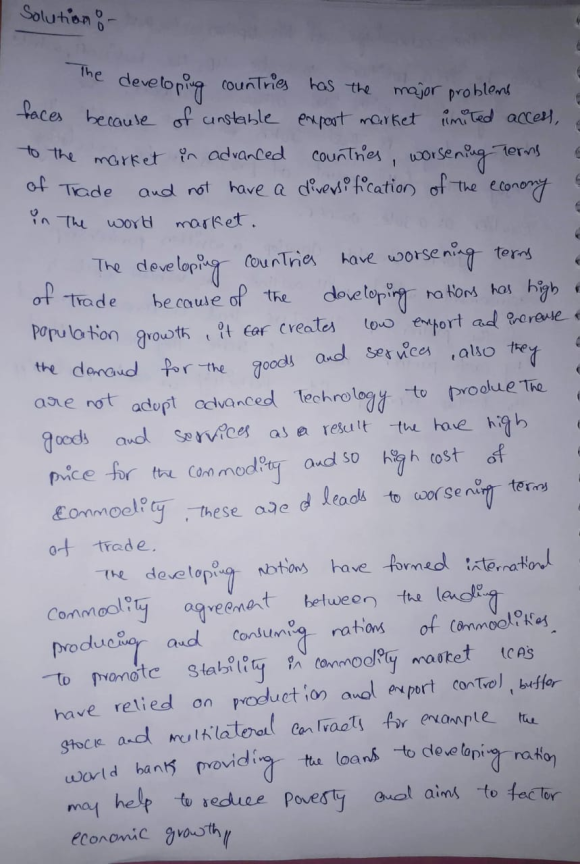 Solution:-
The developing countries has the major problems
faces because of unstable export market limited access,
to the market in advanced countries, worsening Terms
of Trade and not have a diversification of the economy
in The world market.
The developing countries have worsening terms
of trade because of the developing nations has high
population growth, it creates low export ad increase
the demand for the goods and services, also they
are not adopt advanced Technology to produce The
goods and services as a result the have high
price for the commodity and so high cost of
commodity. These are leads to worsening terms
of trade.
The developing Nations have formed international
commodity agreement between the leading
producing and consuming nations of commodities.
To promote stability in commodity market ICA's
have relied on production and export control, buffer
stock and multilateral contracts for example the
world bank providing the loans to developing nation
may help to reduce poverty and aims to factor
economic growth//